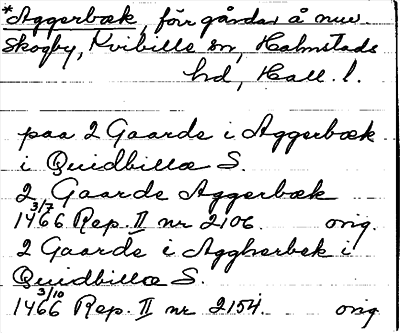 *Aggerbæk, förr gårdar å nuv.
Skogby, Kvibille sn, Halmstads
hd, Hall. l.
paa 2 Gaarde i Aggerbæk
i Quidbillæ S.
2 Gaarde Aggerbæk
3/7
1466 Rep. II nr 2106. orig.
2 Gaarde i Agghærbek i
Quidbillæ S.
3/10
1466 Rep. II nr 2154. orig